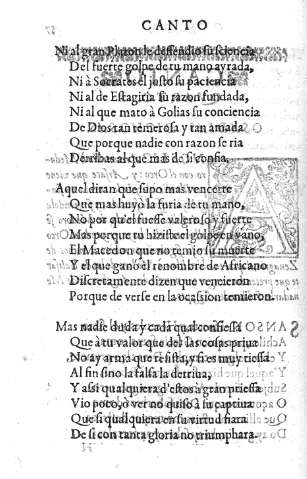 CANTO
Ni al gran Platon le deffendio su sciencia
Del fuerte golpe de tu mano ayrada,
Ni à Socrates el justo su paciencia
Ni al de Estagiria su razon fundada,
Ni al que matò à Golias su conciencia
De Dios tan temerosa y tan amada
Que porque nadie con razon se ria
Derribas al que mas de si confia,
Aquel diran que supo mas vencerte
Que mas huyò la furia de tu mano,
No por qu'el fuesse valeroso y fuerte
Mas porque tu hiziste el golpe en vano,
El Macedon que no temio su muerte
Y el que ganò el renombre de Africano
Discretamente dizen que vencieron
Porque de verse en la ocassion temieron.
Mas nadie duda y cada qual confiessa
Que a tu valor que del las cosas priua
No ay arma que resista, y si es muy tiessa
Al fin sino la falsa la derriua,
Y assi qualquiera d'estos à gran priessa
Vio poco, o ver no quiso à su captiua
Que si qualquiera en su virtud fiara
De si con tanta gloria no triumphara.